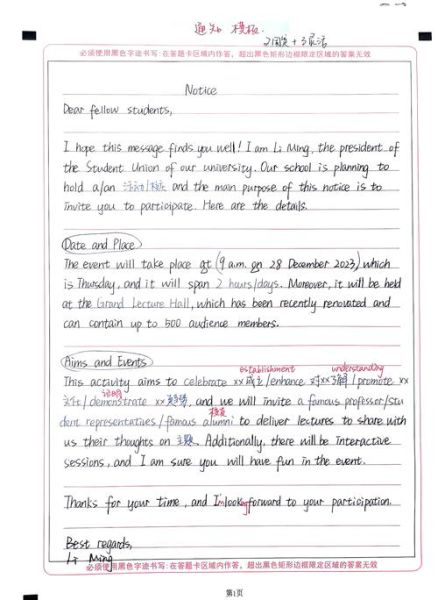 通知 模板
2固定+3灵活
必须使用黑色字迹书写:在答题卡区域内作答,超出黑色矩形边框限定区域的答案无效
Notice
Dear fellow students,
I hope this message finds you well! I am Li Ming, the president of
the Student Union of our university. Our school is planning to
hold a/an 活动/校庆 and the main purpose of this notice is to
invite you to participate. Here are the details.
Date and Place
The event will take place at (9 a.m. on 28 December 2023) which
is Thursday, and it will span 2 hours/days. Moreover, it will be held
at the Grand Lecture Hall, which has been recently renovated and
can contain up to 500 audience members.
Aims and Events
establishment understanding
This activity aims to celebrate xx成立/enhance 对xx了解/promote xx
证明
文化/demonstrate xx, and we will invite a famous professor/stu
校友
dent representatives/famous alumni to deliver lectures to share with
us their thoughts on 主题. Additionally, there will be Interactive
sessions, and I am sure you will have fun in the event.
Thanks for your time, and I'm looking forward to your participation.
Best regards,
Li Ming
必须使用黑色字迹书写:在答题卡区域内作答,超出黑色矩形边框限定区域的答案无效
第1页